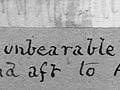 unbearable
nd aft to A